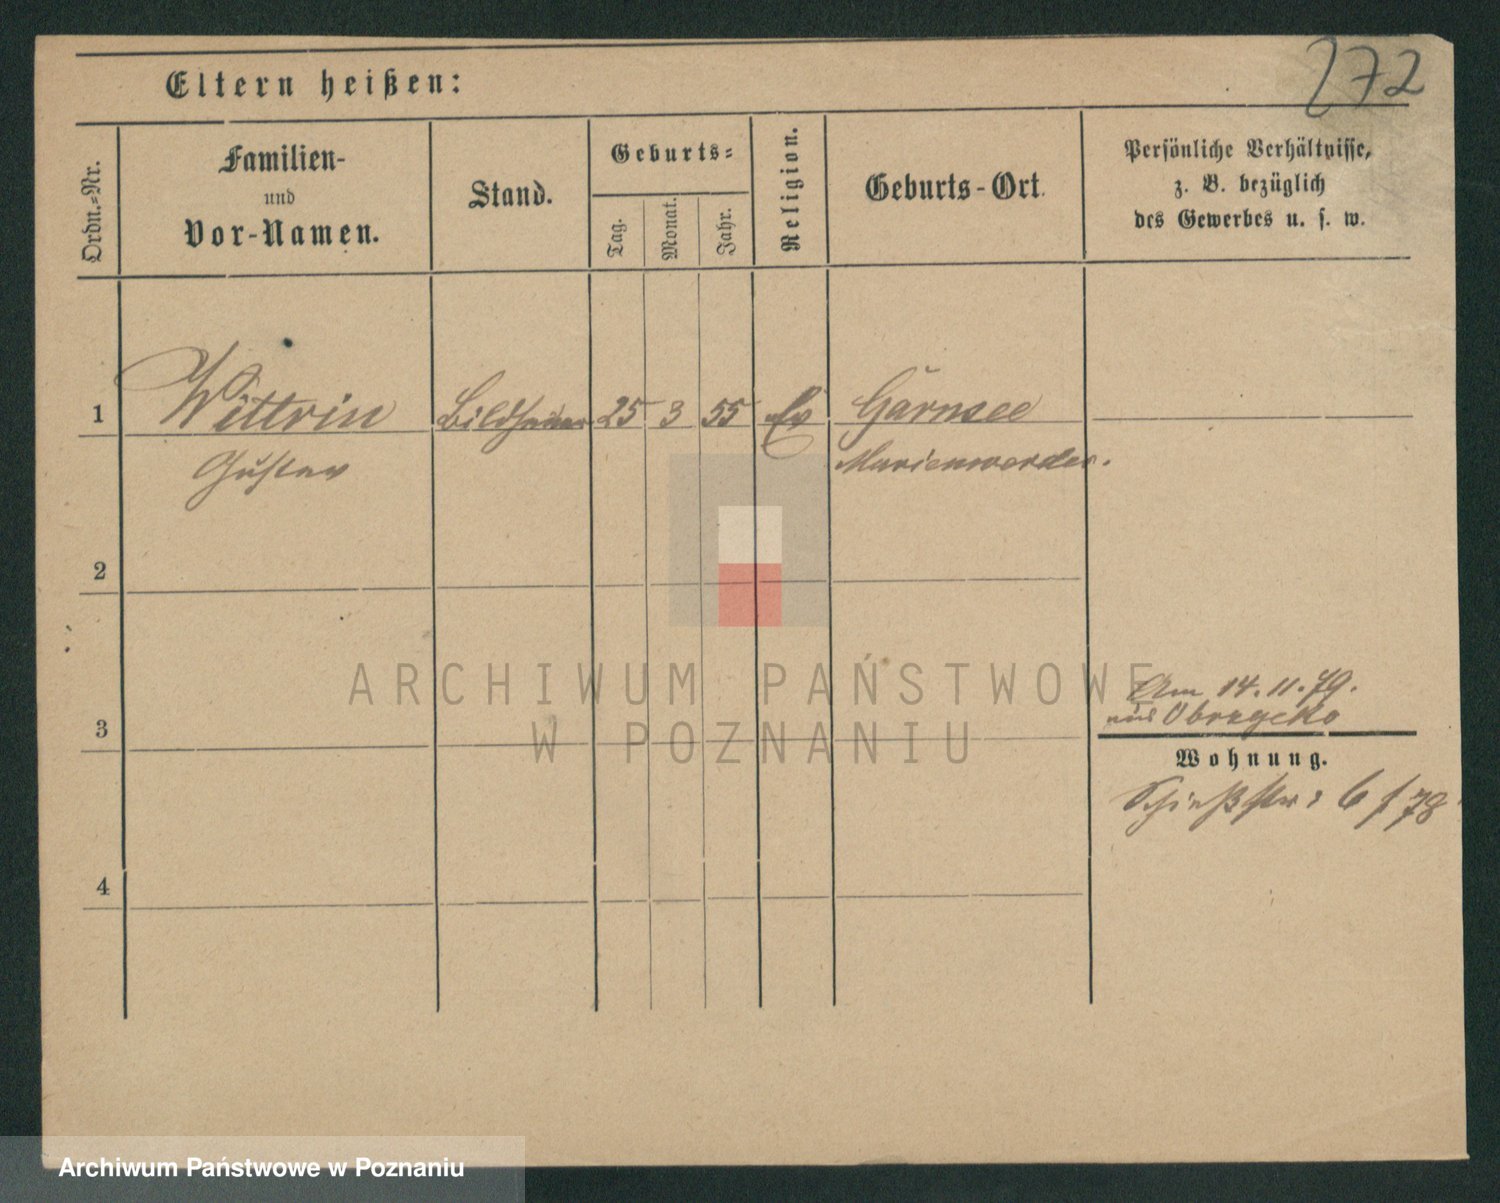 272
Eltern heißen:
Ordn.-Nr.
Familien-
und
Vor-Namen.
Stand.
Geburts-
Tag.
Monat.
Jahr.
Religion.
Geburts-Ort.
Persönliche Verhältnisse,
z. B. bezüglich
des Gewerbes u. s. w.
1
Wittrin
Bildhauer
25
3
55
Ev
Garnsee
Gustav
Marienwerder.
2
3
4
Am 14.11.79.
aus Obrzycko
Wohnung.
Schießstr: 6 / 78
ARCHIWUM PAŃSTWOWE
W POZNANIU
Archiwum Państwowe w Poznaniu